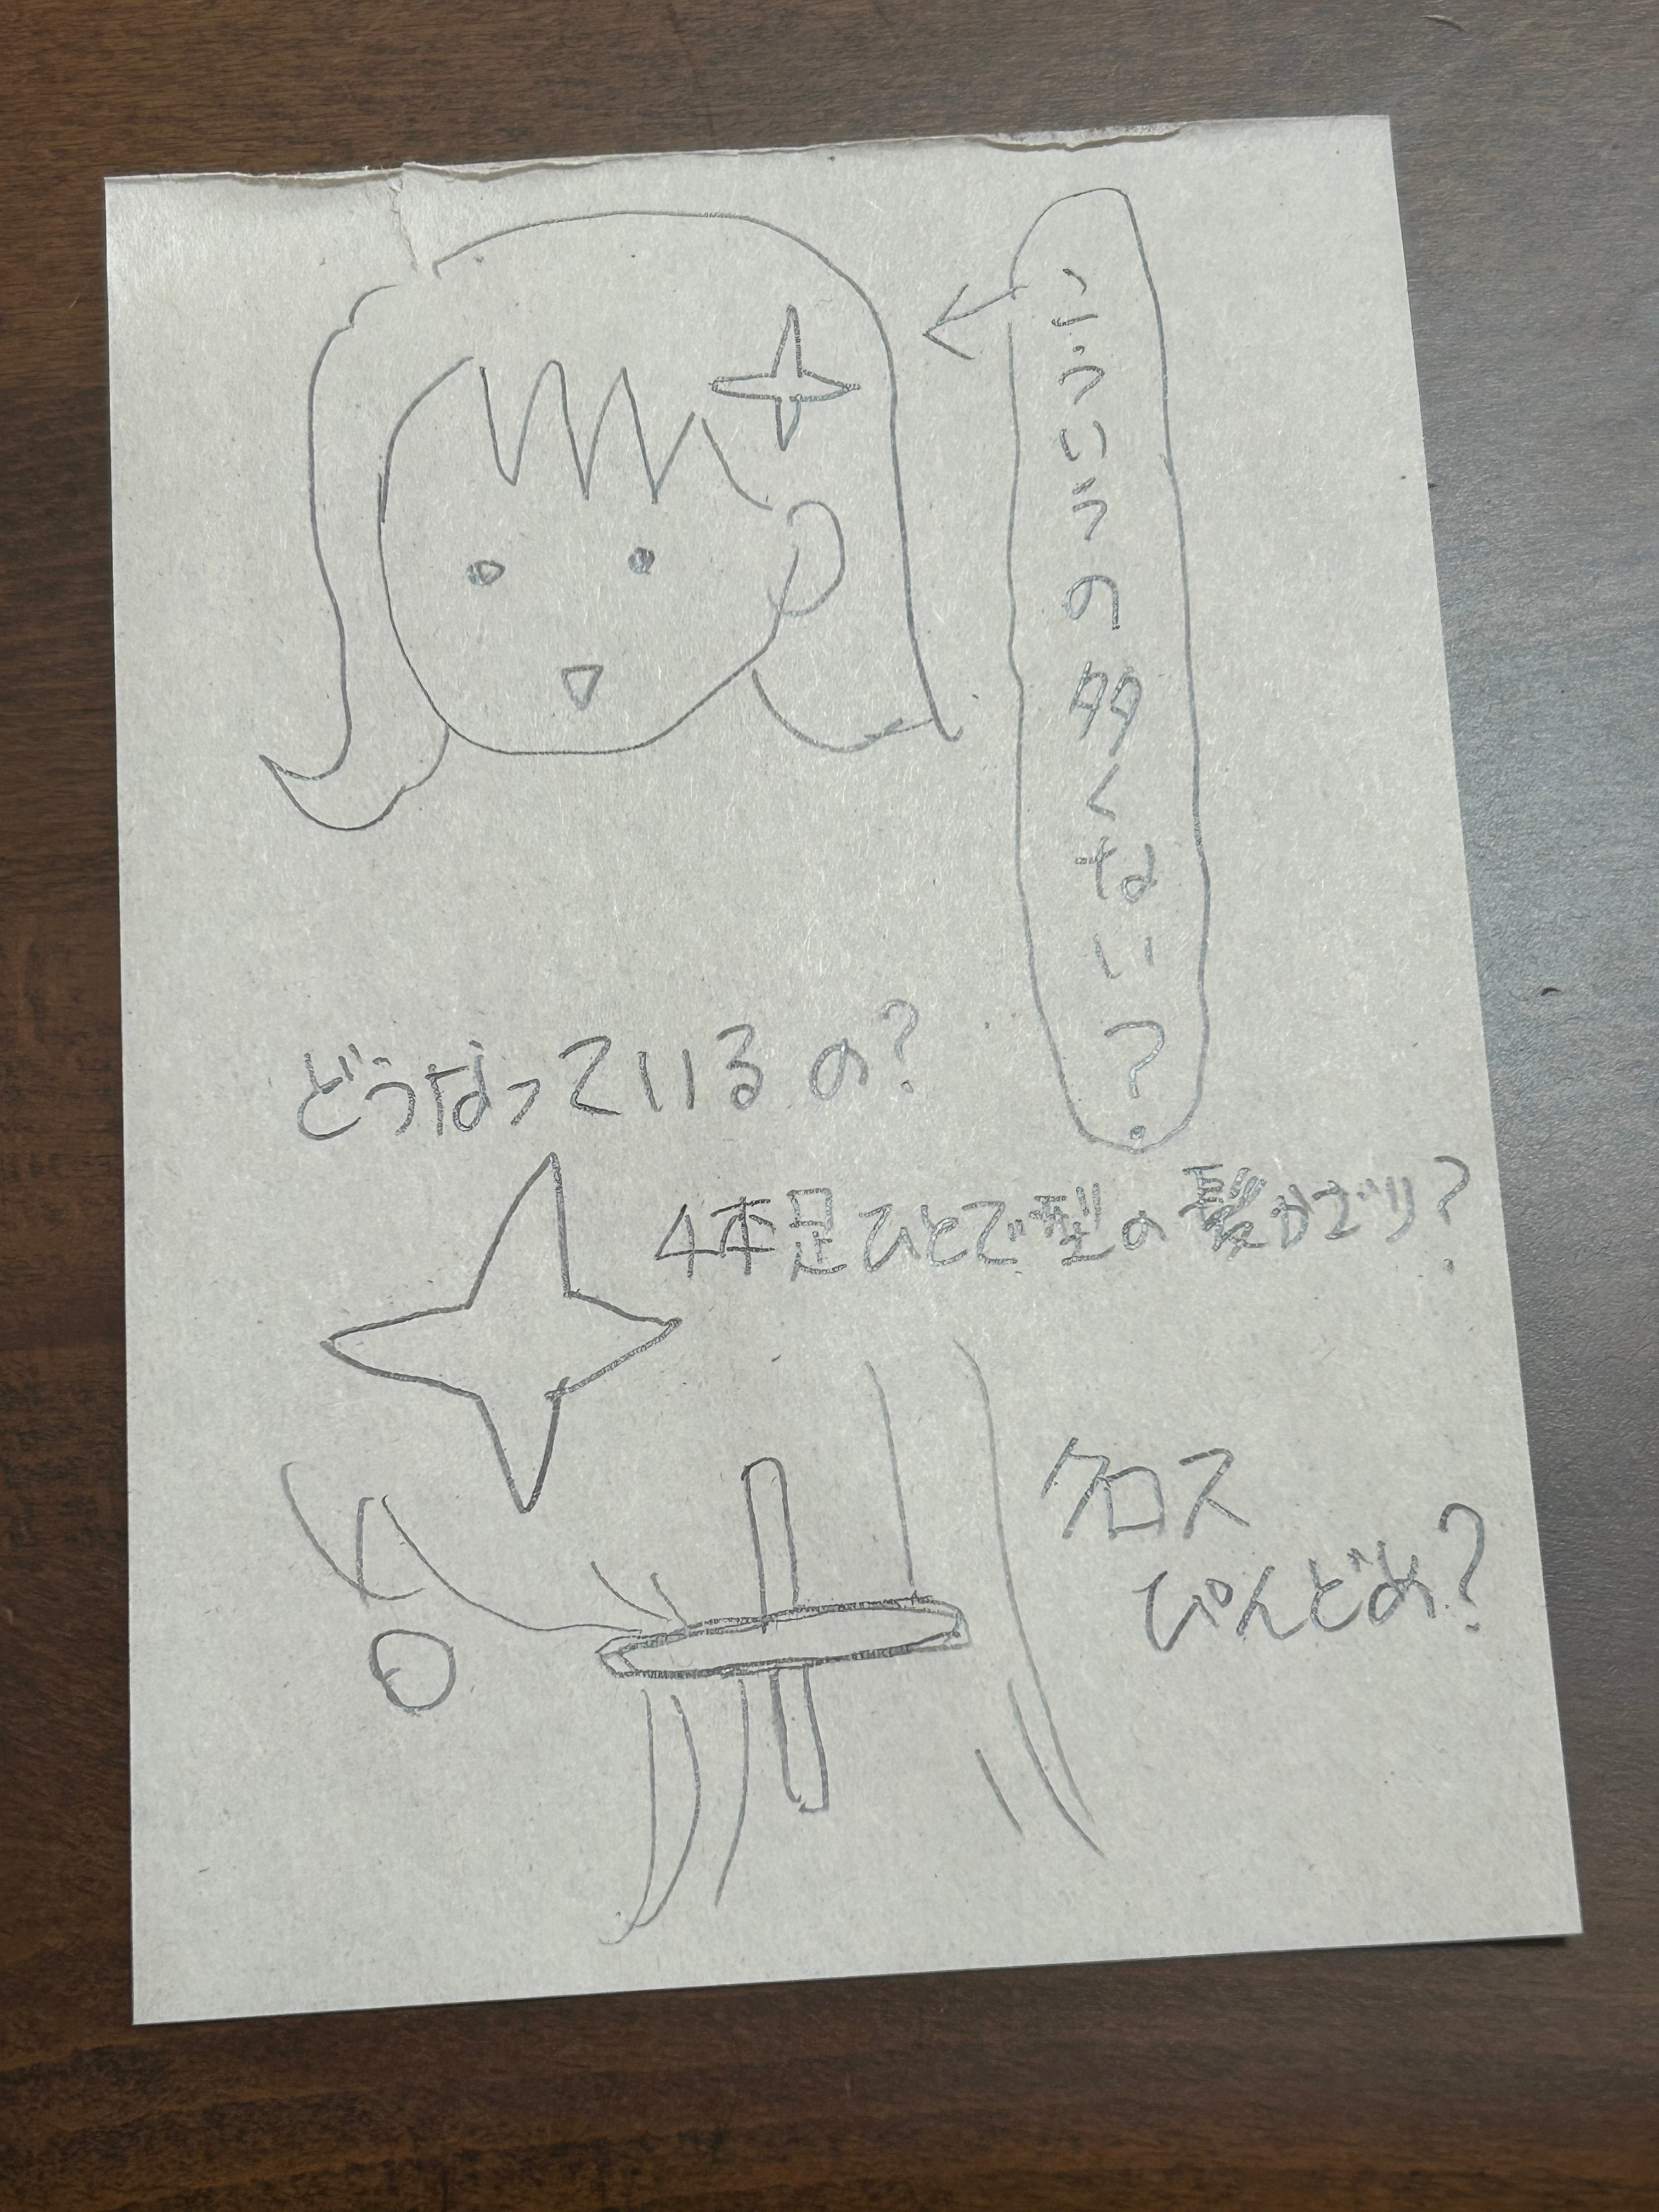 こういうの多くない?
どうなっているの?
4本足ひとで型の髪かざり?
クロス
ぴんどめ?